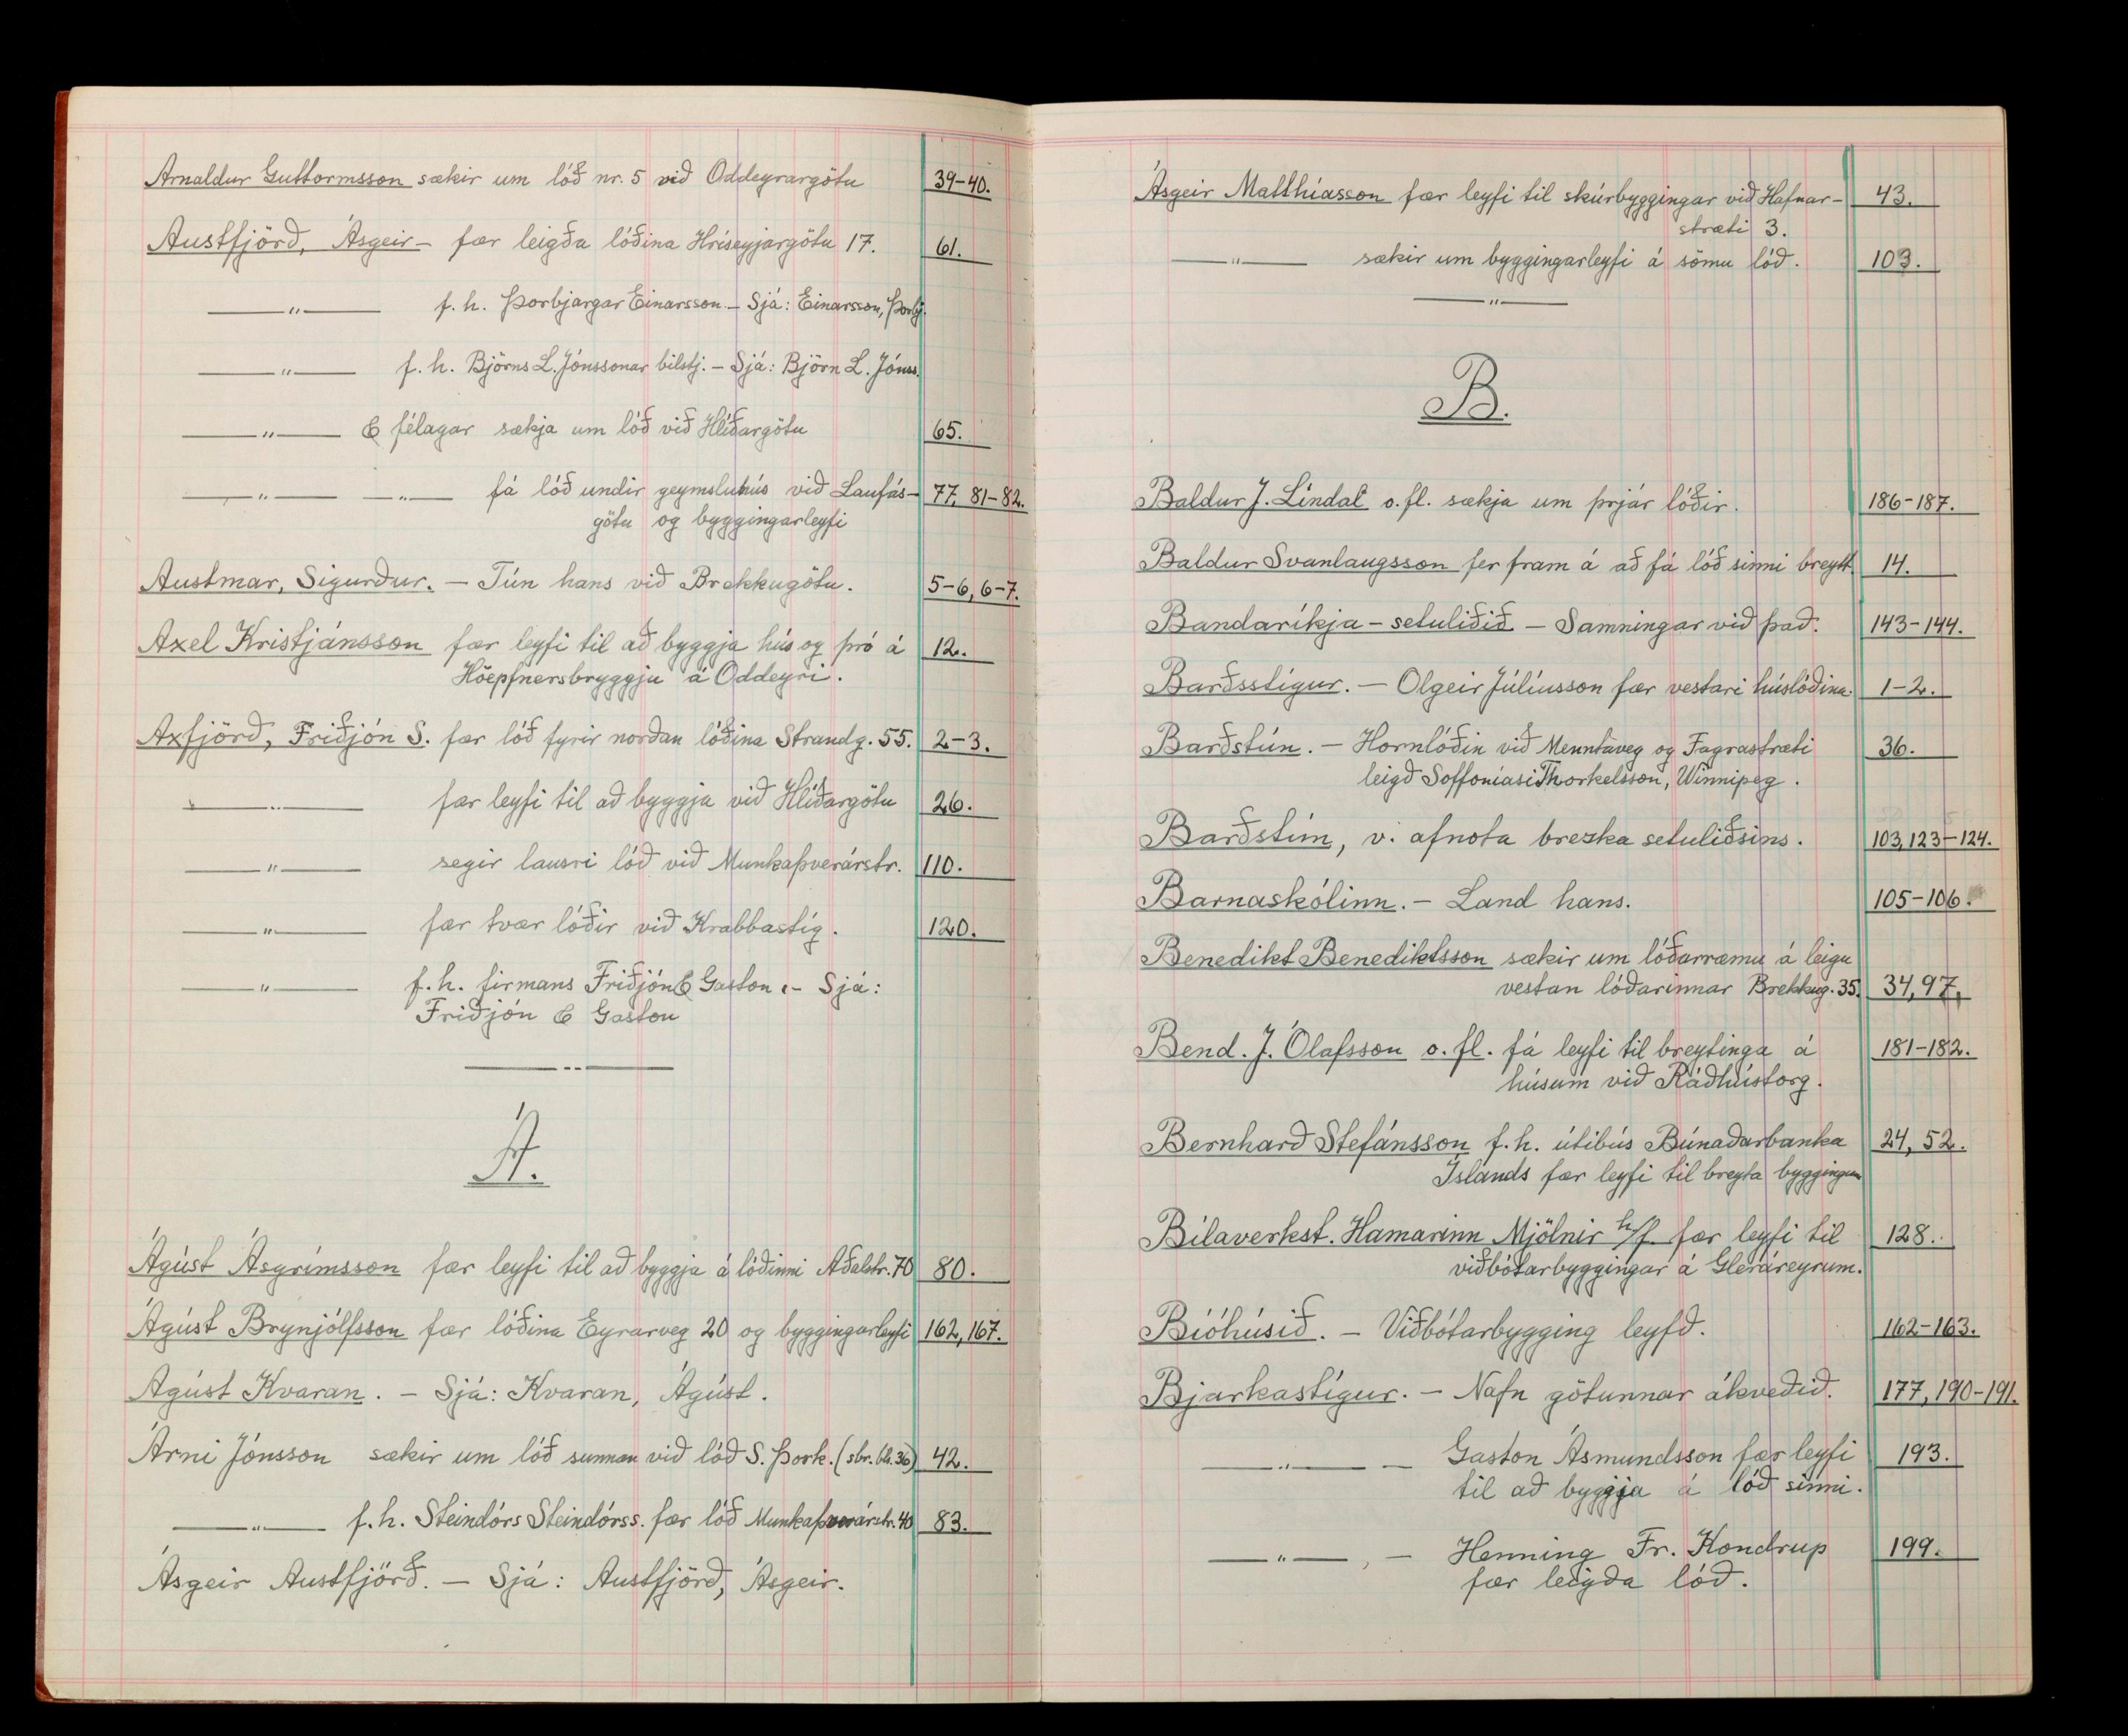 Arnaldur Guttormsson sækir um lóð nr. 5 við Oddeyrargötu 39-40.
Austfjörð, Ásgeir - fær leigða lóðina Hríseyjargötu 17. 61.
— " — f. h. Þorbjargar Einarsson. - Sjá: Einarsson, Þorbj.
— " — f. h. Björns L. Jónssonar bílstj. - Sjá: Björn L. Jónss.
— " — & félagar sækja um lóð við Hlíðargötu 65.
— " — — " — fá lóð undir geymsluhús við Laufás- 77, 81-82.
götu og byggingarleyfi
Austmar, Sigurður. - Tún hans við Brekkugötu. 5-6, 6-7.
Axel Kristjánsson fær leyfi til að byggja hús og þró á 12.
Höepfnersbryggju á Oddeyri.
Axfjörð, Friðjón S. fær lóð fyrir norðan lóðina Strandg. 55. 2-3.
— " — fær leyfi til að byggja við Hlíðargötu 26.
— " — segir lausri lóð við Munkaþverárstr. 110.
— " — fær tvær lóðir við Krabbastíg. 120.
— " — f. h. firmans Friðjón & Gaston. - Sjá:
Friðjón & Gaston
— " —
Á.
Ágúst Ásgrímsson fær leyfi til að byggja á lóðinni Aðalstr. 70 80.
Ágúst Brynjólfsson fær lóðina Eyrarveg 20 og byggingarleyfi 162, 167.
Agúst Kvaran. - Sjá: Kvaran, Ágúst.
Árni Jónsson sækir um lóð sunnan við lóð S. Þork. (sbr. bls. 36) 42.
— " — f. h. Steindórs Steindórss. fær lóð Munkaþverárstr. 40 83.
Ásgeir Austfjörð. - Sjá: Austfjörð, Ásgeir.
Ásgeir Matthíasson fær leyfi til skúrbyggingar við Hafnar- 43.
stræti 3.
— " — sækir um byggingarleyfi á sömu lóð. 103.
— " —
B.
Baldur J. Líndal o. fl. sækja um þrjár lóðir. 186-187.
Baldur Svanlaugsson fer fram á að fá lóð sinni breytt. 14.
Bandaríkja-setuliðið - Samningar við það. 143-144.
Barðsstígur. - Olgeir Júlíusson fær vestari húslóðina. 1-2.
Barðstún. - Hornlóðin við Menntaveg og Fagrastræti 36.
leigð Soffoníasi Thorkelsson, Winnipeg.
Barðstún, v. afnota brezka setuliðsins. 103, 123-124.
Barnaskólinn. - Land hans. 105-106.
Benedikt Benediktsson sækir um lóðarræmu á leigu
vestan lóðarinnar Brekkug. 35. 34, 97.
Bend. J. Ólafsson o. fl. fá leyfi til breytinga á 181-182.
húsum við Ráðhústorg.
Bernharð Stefánsson f. h. útibús Búnaðarbanka 24, 52.
Íslands fær leyfi til breyta byggingum
Bílaverkst. Hamarinn Mjölnir h/f. fær leyfi til 128.
viðbótarbyggingar á Gleráreyrum.
Bíóhúsið. - Viðbótarbygging leyfð. 162-163.
Bjarkastígur. - Nafn götunnar ákveðið. 177, 190-191.
— " — - Gaston Ásmundsson fær leyfi 193.
til að byggja á lóð sinni.
— " — , - Henning Fr. Kondrup 199.
fær leigða lóð.